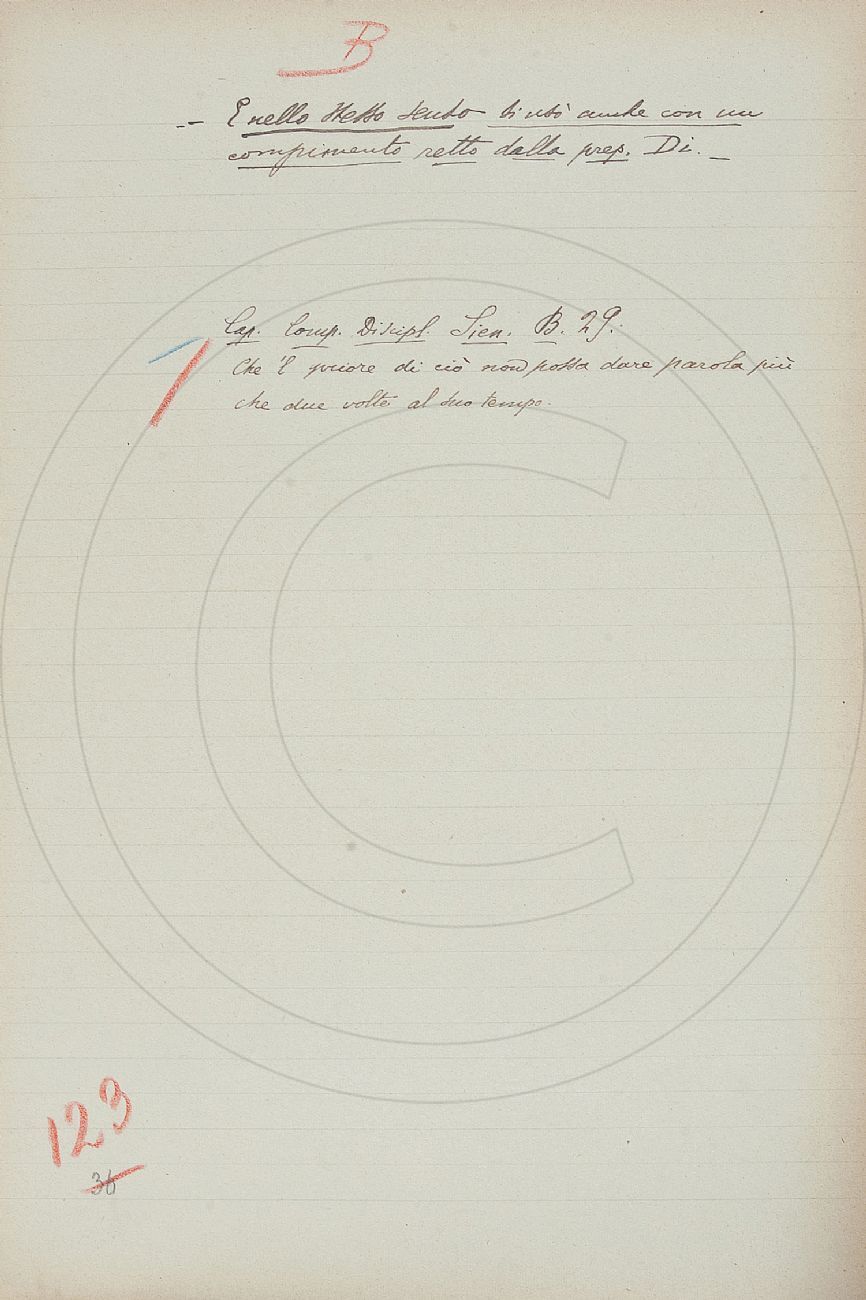 B
.- E nello stesso senso si usò anche con un
compimento retto dalla prep. Di. _
Cap. Comp. Discipl. Sien. B. 29:
Che 'l priore di ciò non possa dare parola più
che due volte al suo tempo.
123
36